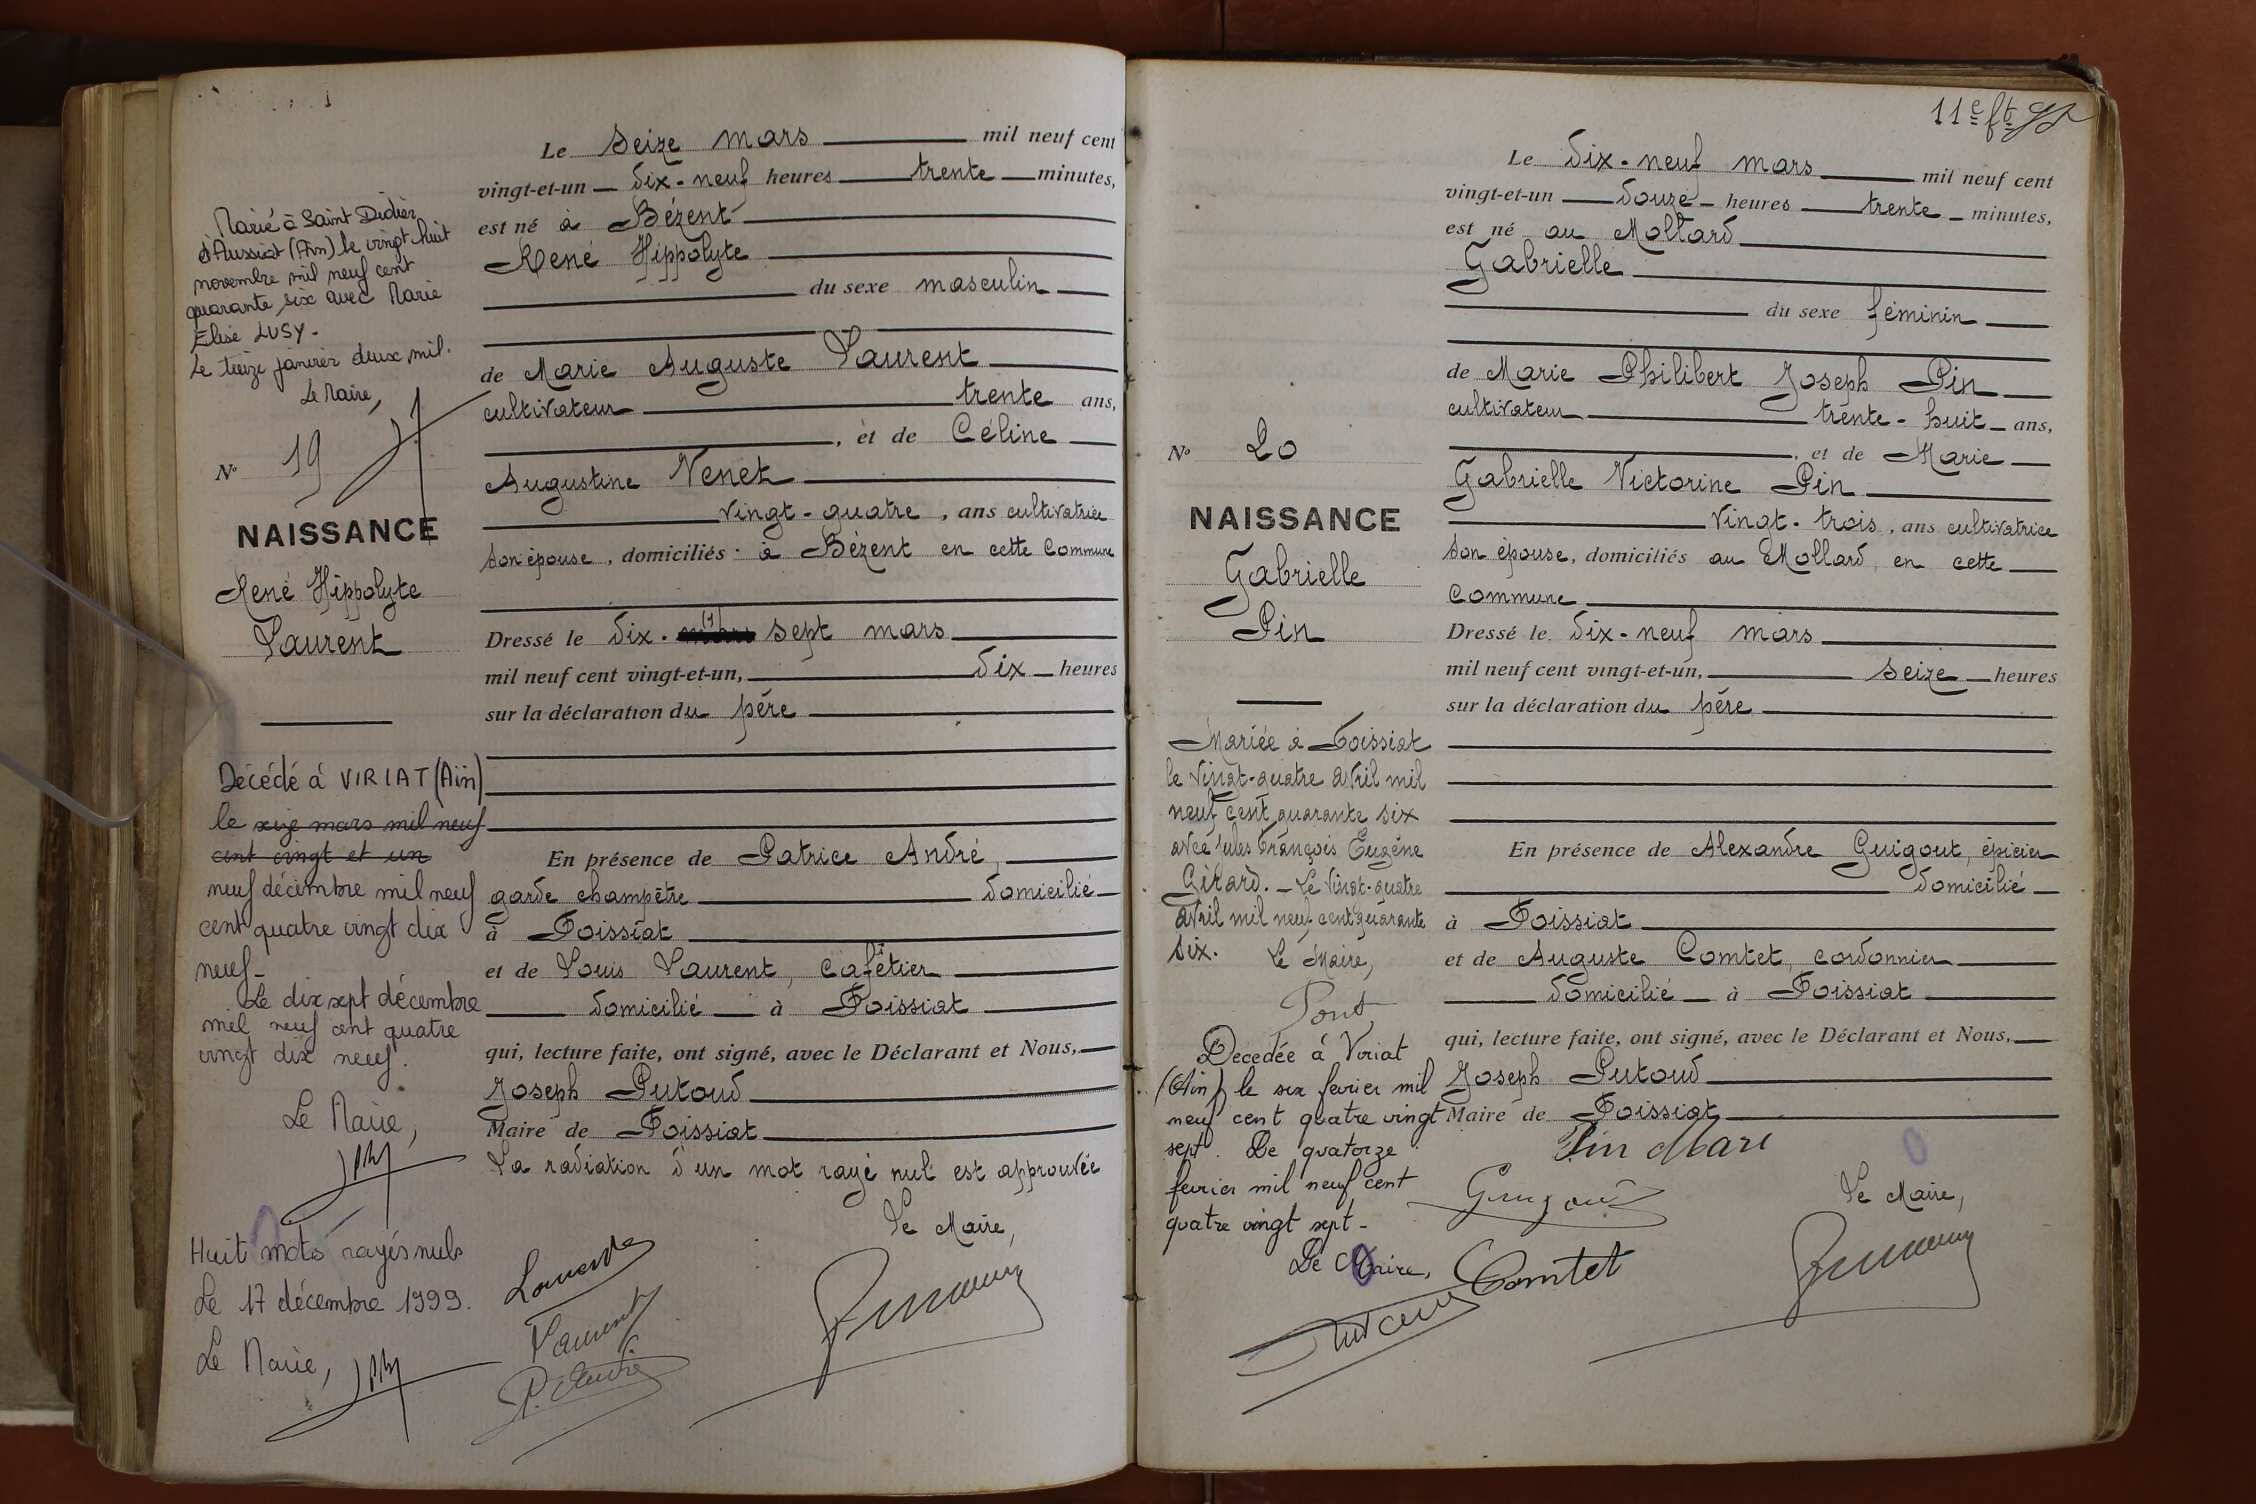 Le seize mars mil neuf cent
vingt-et-un dix-neuf heures trente minutes,
est né à Bézent
René Hippolyte
du sexe masculin
de Marie Auguste Laurent
cultivateur trente ans,
, et de Céline
Augustine Venet
vingt-quatre, ans cultivatrice
son épouse, domiciliés à Bézent en cette commune
Dressé le dix- (1) sept mars
mil neuf cent vingt-et-un, dix heures
sur la déclaration du père
En présence de Patrice André,
garde champêtre domicilié
à Foissiat
et de Louis Laurent, cafetier
domicilié à Foissiat
qui, lecture faite, ont signé, avec le Déclarant et Nous,
Joseph Putoud
Maire de Foissiat
La radiation d'un mot rayé nul est approuvée
Le Maire,
Laurent
Laurent
P. André
Marié à Saint Didier
d'Aussiat (Ain) le vingt huit
novembre mil neuf cent
quarante six avec Marie
Elise LUSY.
Le treize janvier deux mil.
Le Maire,
No 19
NAISSANCE
René Hippolyte
Laurent
Décédé à VIRIAT (Ain)
le seize mars mil neuf
cent vingt et un
neuf décembre mil neuf
cent quatre vingt dix
neuf-
Le dix sept décembre
mil neuf cent quatre
vingt dix neuf.
Le Maire,
Huit mots rayés nuls
Le 17 décembre 1999.
Le Maire,
11e ft
Le dix-neuf mars mil neuf cent
vingt-et-un douze heures trente minutes,
est né au Mollard
Gabrielle
du sexe féminin
de Marie Philibert Joseph Pin
cultivateur trente-huit ans,
, et de Marie
Gabrielle Victorine Pin
vingt-trois, ans cultivatrice
son épouse, domiciliés au Mollard, en cette
commune
Dressé le dix-neuf mars
mil neuf cent vingt-et-un, seize heures
sur la déclaration du père
En présence de Alexandre Guigout, épicier
domicilié
à Foissiat
et de Auguste Comtet, cordonnier
domicilié à Foissiat
qui, lecture faite, ont signé, avec le Déclarant et Nous,
Joseph Putoud
Maire de Foissiat
Pin Mari
Le Maire,
Comtet
No 20
NAISSANCE
Gabrielle
Pin
Mariée à Foissiat
le vingt-quatre avril mil
neuf cent quarante six
avec Jules François Eugène
Girard. - Le vingt-quatre
avril mil neuf cent quarante
six. Le Maire,
Pont
Decedée à Viriat
(Ain) le six fevrier mil
neuf cent quatre vingt
sept. Le quatorze
fevrier mil neuf cent
quatre vingt sept-
Le Maire,